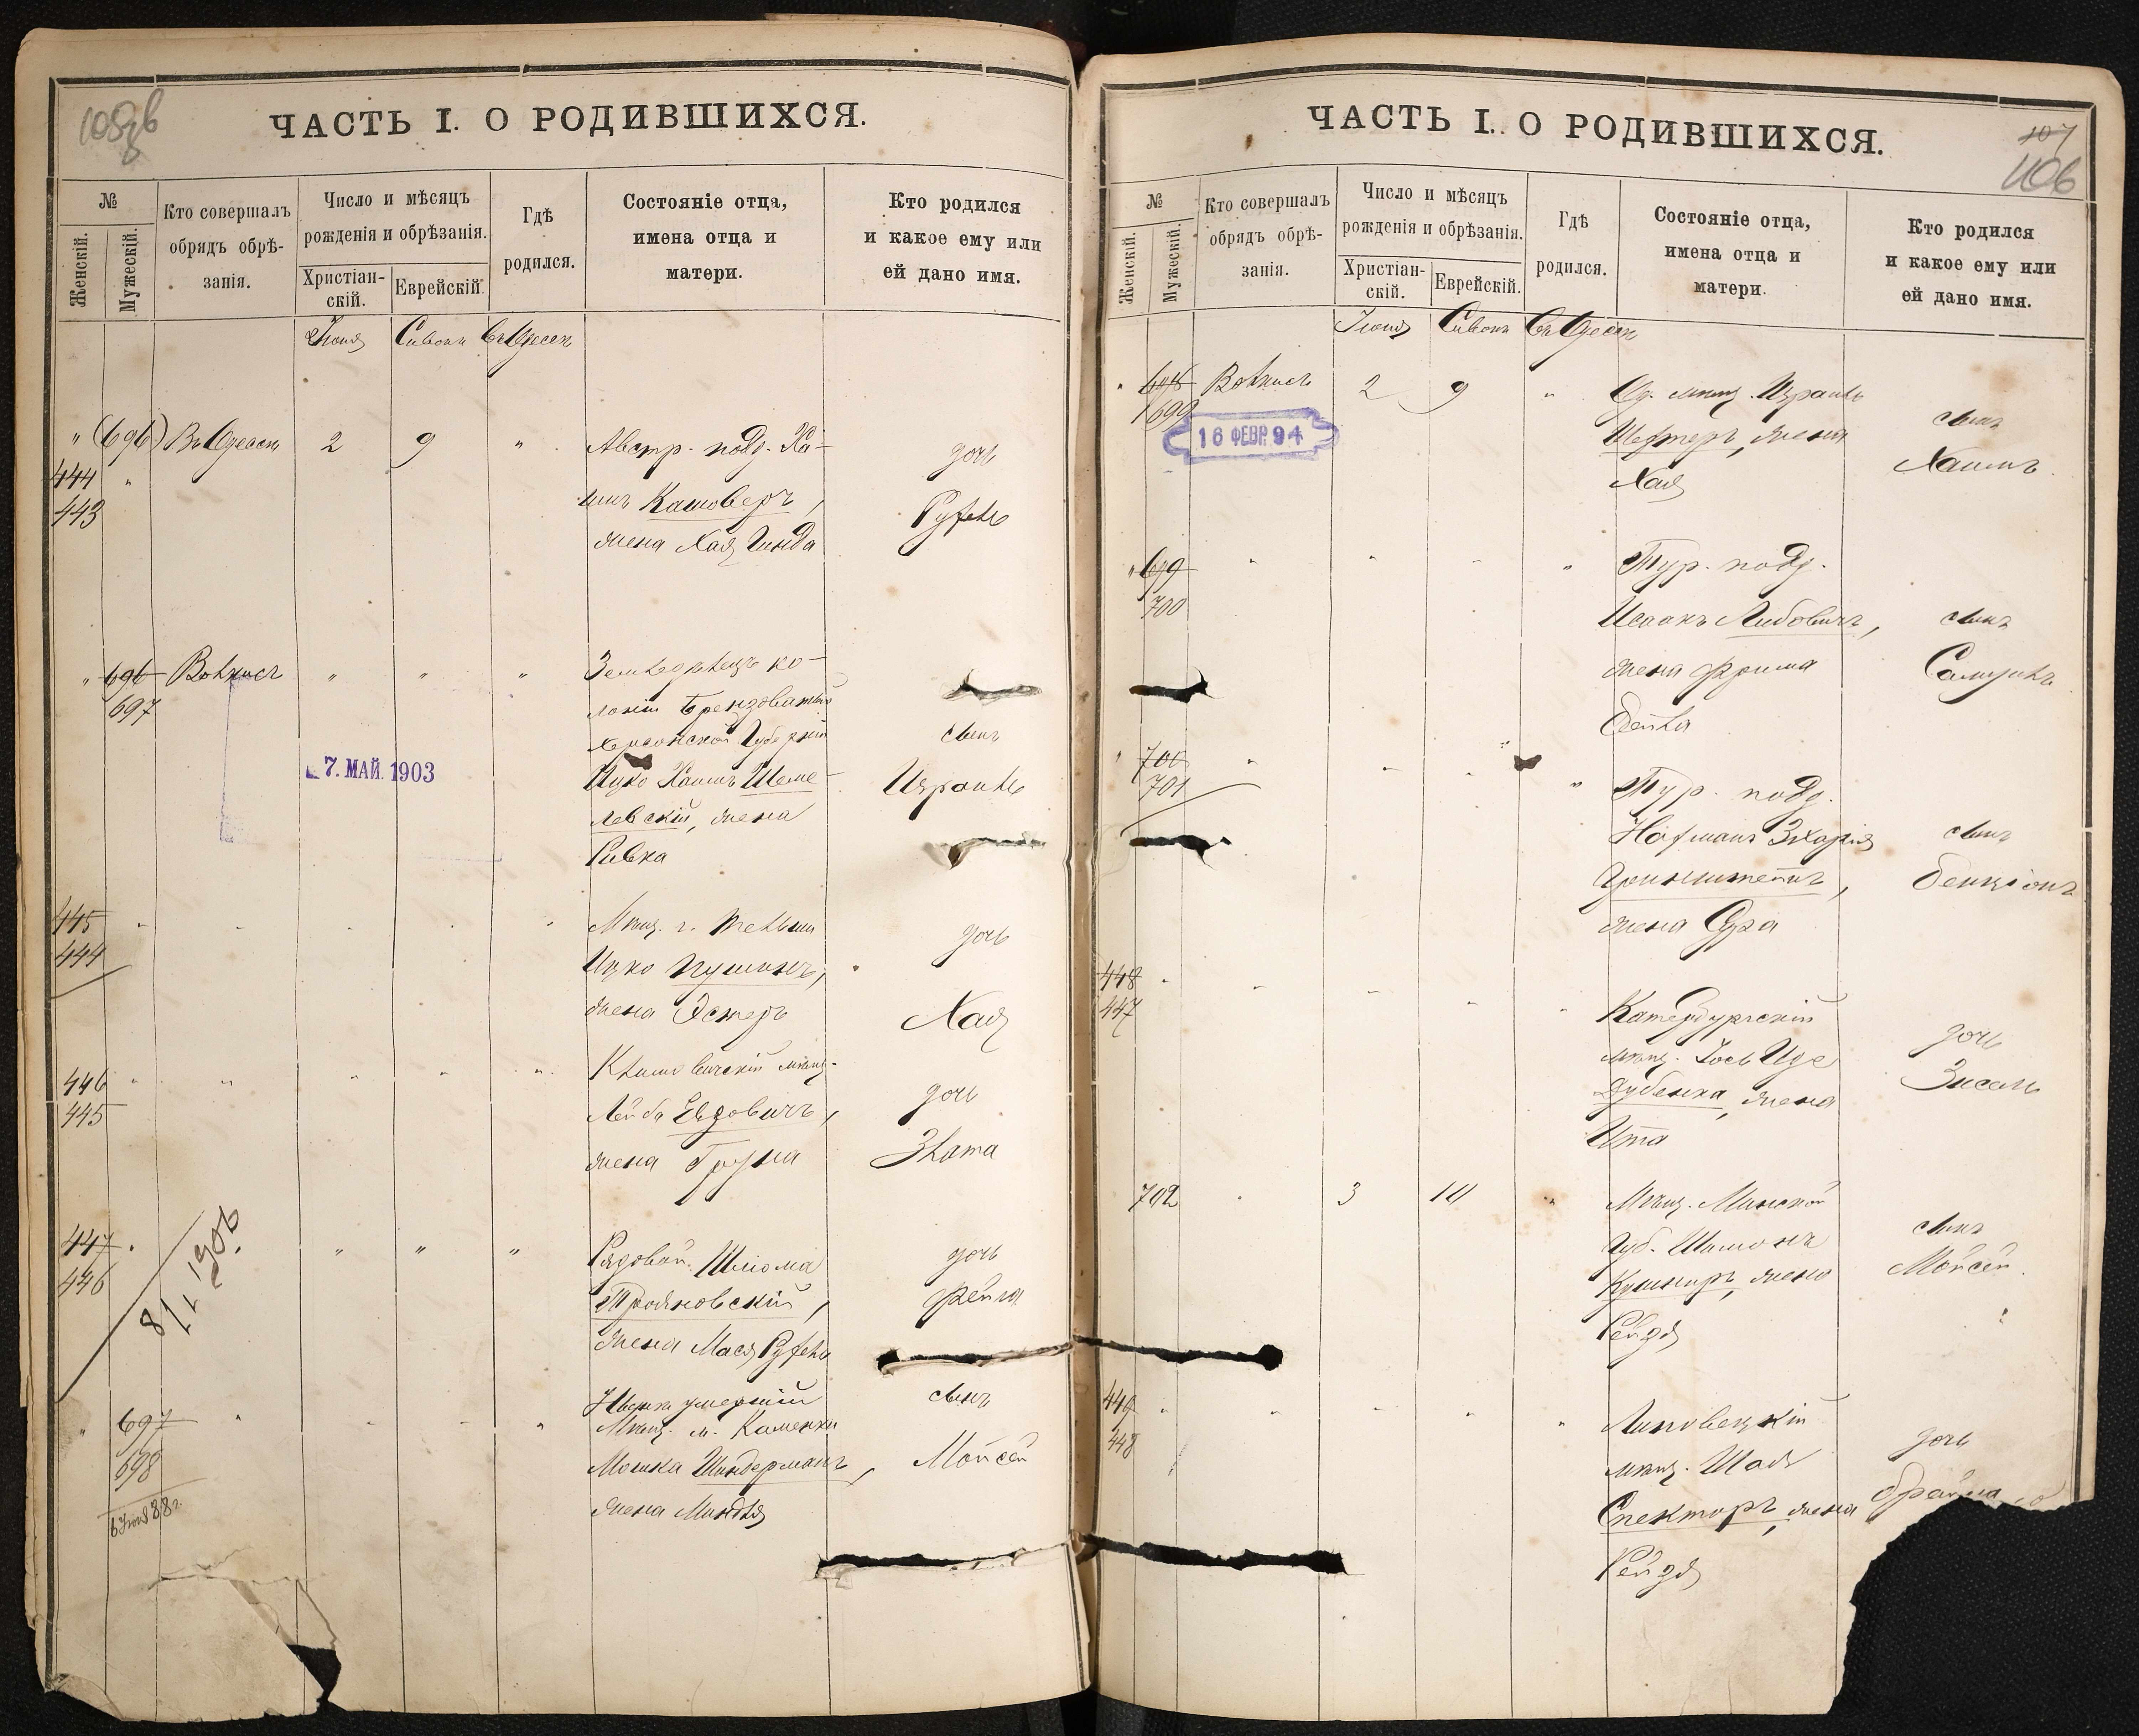 105об
ЧАСТЬ I. О РОДИВШИХСЯ.
№
Женскій.
Мужескій.
Кто совершалъ
обрядъ обрѣ-
занія.
Число и мѣсяцъ
рожденія и обрѣзанія.
Христіан-
скій.
Еврейскій.
Гдѣ
родился.
Состояніе отца,
имена отца и
матери.
Кто родился
и какое ему или
ей дано имя.
Іюня Сивонъ Въ Одессѣ
" (696) Въ Одессѣ 2 9 " Австр. подд. Ха-
444 "
443
имъ Кашоверъ,
жена Хая Гинда
дочь
Рухель
" 696 " " "
697
Земледѣлецъ ко-
лоніи
Херсонской Губерніи
Ицко Хаимъ Шеме-
левскій, жена
Ривка
сынъ
Израиль
7. МАЙ. 1903
445
444
Мѣщ. г.
Ицко Пушинъ,
жена Эстеръ
дочь
Хая
446
445
мѣщ.
Лейба Евзовичъ,
жена Груна
дочь
Злата
447
446
" " "
Рядовой Шлома
Трояновскій,
жена Мася Рухель
дочь
Фейга
8/I 1906
697
698
6 Іюня 88 г.
Нынѣ умершій
Мѣщ. м. Каменки
Мошка Шндерманъ,
жена Миндля
сынъ
Мойсей
ЧАСТЬ I. О РОДИВШИХСЯ.
107
106
№
Женскій.
Мужескій.
Кто совершалъ
обрядъ обрѣ-
занія.
Число и мѣсяцъ
рожденія и обрѣзанія.
Христіан-
скій.
Еврейскій.
Гдѣ
родился.
Состояніе отца,
имена отца и
матери.
Кто родился
и какое ему или
ей дано имя.
Іюня Сивонъ Въ Одессѣ
698 2 9 "
699
16 ФЕВР. 94
Од. мѣщ. Израиль
Шехтеръ, жена
Хая
сынъ
Хаимъ
" 699
700
Тур. подд.
Исаакъ Либовичъ,
жена Фрима
Бейла
сынъ
Самуилъ
700
701
Тур. подд.
Нахманъ Зхарія
Гринштейнъ,
жена Сура
сынъ
Бенціонъ
448
447
Катербургскій
мѣщ. Іось Иде
Дубенка, жена
Ита
дочь
Зисель
702 3 10
Мѣщ. Минской
Губ. Шимонъ
Кушниръ, жена
Рейзя
сынъ
Мойсей
449
448
Липовецкій
мѣщ. Шая
Спекторъ, жена
Рейзя
дочь